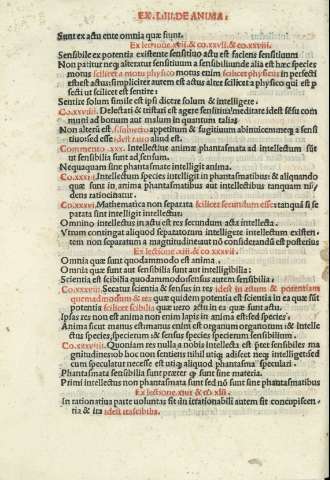 EX .L.III. DE ANIMA:
Sunt ex actu ente omnia quæ fiunt.
Ex lectione xvii & co.xxvii & co.xxviii.
Sensibile ex potentia existente sensitiuo actu est faciens sensitiuum
Non patitur neq; alteratur sensitiuum a sensibili unde alia est hæc species
motus scilicet a motu physico motus enim scilicet physicus in perfecti
est est actus: simpliciter autem est actus alter scilicet a physico qui est p
fecti ut scilicet est sentire:
Sentire solum simile est ipsi dicere solum & intelligere.
Co.xxviii. Delectari & tristari est agere sensitiua medietate idest sensu com
muni ad bonum aut malum in quantum talia:
Non alterū est .s. subiecto appetitum & fugitiuum abinuicem neq; a sensi
tiuo sed esse idest ratio aliud est.
Commento .xxx. Intellectiuæ animæ phantasmata ad intellectum sūt
ut sensibilia sunt ad sensum.
Nequaquam sine phantasmate intelligit anima.
Intellectum species intelligit in phantasmatibus & aliquando
quæ sunt in anima phantasmatibus aut intellectibus tanquam uī,
dens ratiocinatur.
Co.xxxvi. Mathematica non separata scilicet secundum esse: tanquā si se
parata sint intelligit intellectus:
Omnino intellectus in actu est res secundum acta intellecta.
Vtrum contingat aliquod separatorum intelligere intellectum existen,
tem non separatum a magnitudine aut nō considerandū est posterius
Ex lectione .xiii & co.xxxvii.
Omnia quæ sunt quodammodo est anima.
Omnia quæ sunt aut sensibilia sunt aut intelligibilia:
Scientia est scibilia quodammodo sensus autem sensibilia:
Co.xxxviii. Secatur scientia & sensus in res idest in actum & potentiam
quemadmodum & res quæ quidem potentia est scientia in ea quæ sūt
potentia scilicet scibilia quæ uero actu in ea quæ sunt actu.
Ipsas res non est anima non enim lapis in anima est sed species:
Anima sicut manus est manus enim est organum organorum :& intelle
ctus species specierum & sensus species specierum sensibilium.
Co.xxxviiii. Quoniam res nulla nobis intellecta est præter sensibiles ma
gnitudines ob hoc non sentiens nihil utiq; adiscet neq; intelliget: sed
cum speculatur necesse est utiq; aliquod phantasma speculari.
Phantasmata sensibilia sunt præter q̃ sunt sine materia.
Primi intellectus non phantasmata sunt sed nō sunt sine phantasmatibus
Ex lectione.xiiii & co.xli.
In rationatiua parte uoluntas sit in irrationabili autem sit concupiscen,
tia & ira idest irascibilia.